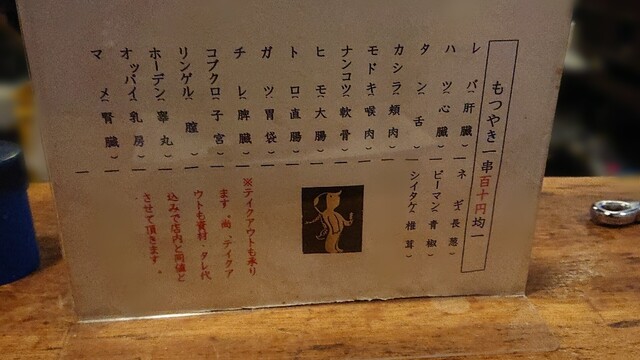 もつやき一串百十円均一
レバ(肝臓)
ハツ(心臓)
タン(舌)
カシラ(頬肉)
モドキ(喉肉)
ナンコツ(軟骨)
ヒモ(大腸)
トロ(直腸)
ガツ(胃袋)
チレ(脾臓)
コブクロ(子宮)
リンゲル(膣)
ホーデン(睾丸)
オッパイ(乳房)
マメ(腎臓)
ネギ(長葱)
ピーマン(青椒)
シイタケ(椎茸)
※テイクアウトも承り
ます。尚、テイクア
ウトも資材・タレ代
込みで店内と同値と
させて頂きます。